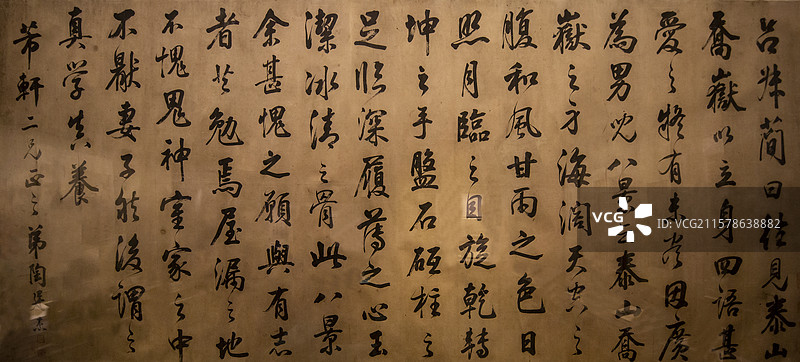 呂叔簡曰仕見泰山
喬嶽以立身四語甚
愛之疑有未尽因廣
為男兒八景云泰山喬
嶽之身海濶天空之
腹和風甘雨之色日
照月臨之目旋乾轉
坤之手盤石砥柱之
足臨深履薄之心玉
潔冰清之骨此八景
余甚愧之願與有志
者共勉焉屋漏之地
不愧鬼神室家之中
不厭妻子然後謂之
真学真養
軒二兄正之弟陶
VCG
VCG211578638882